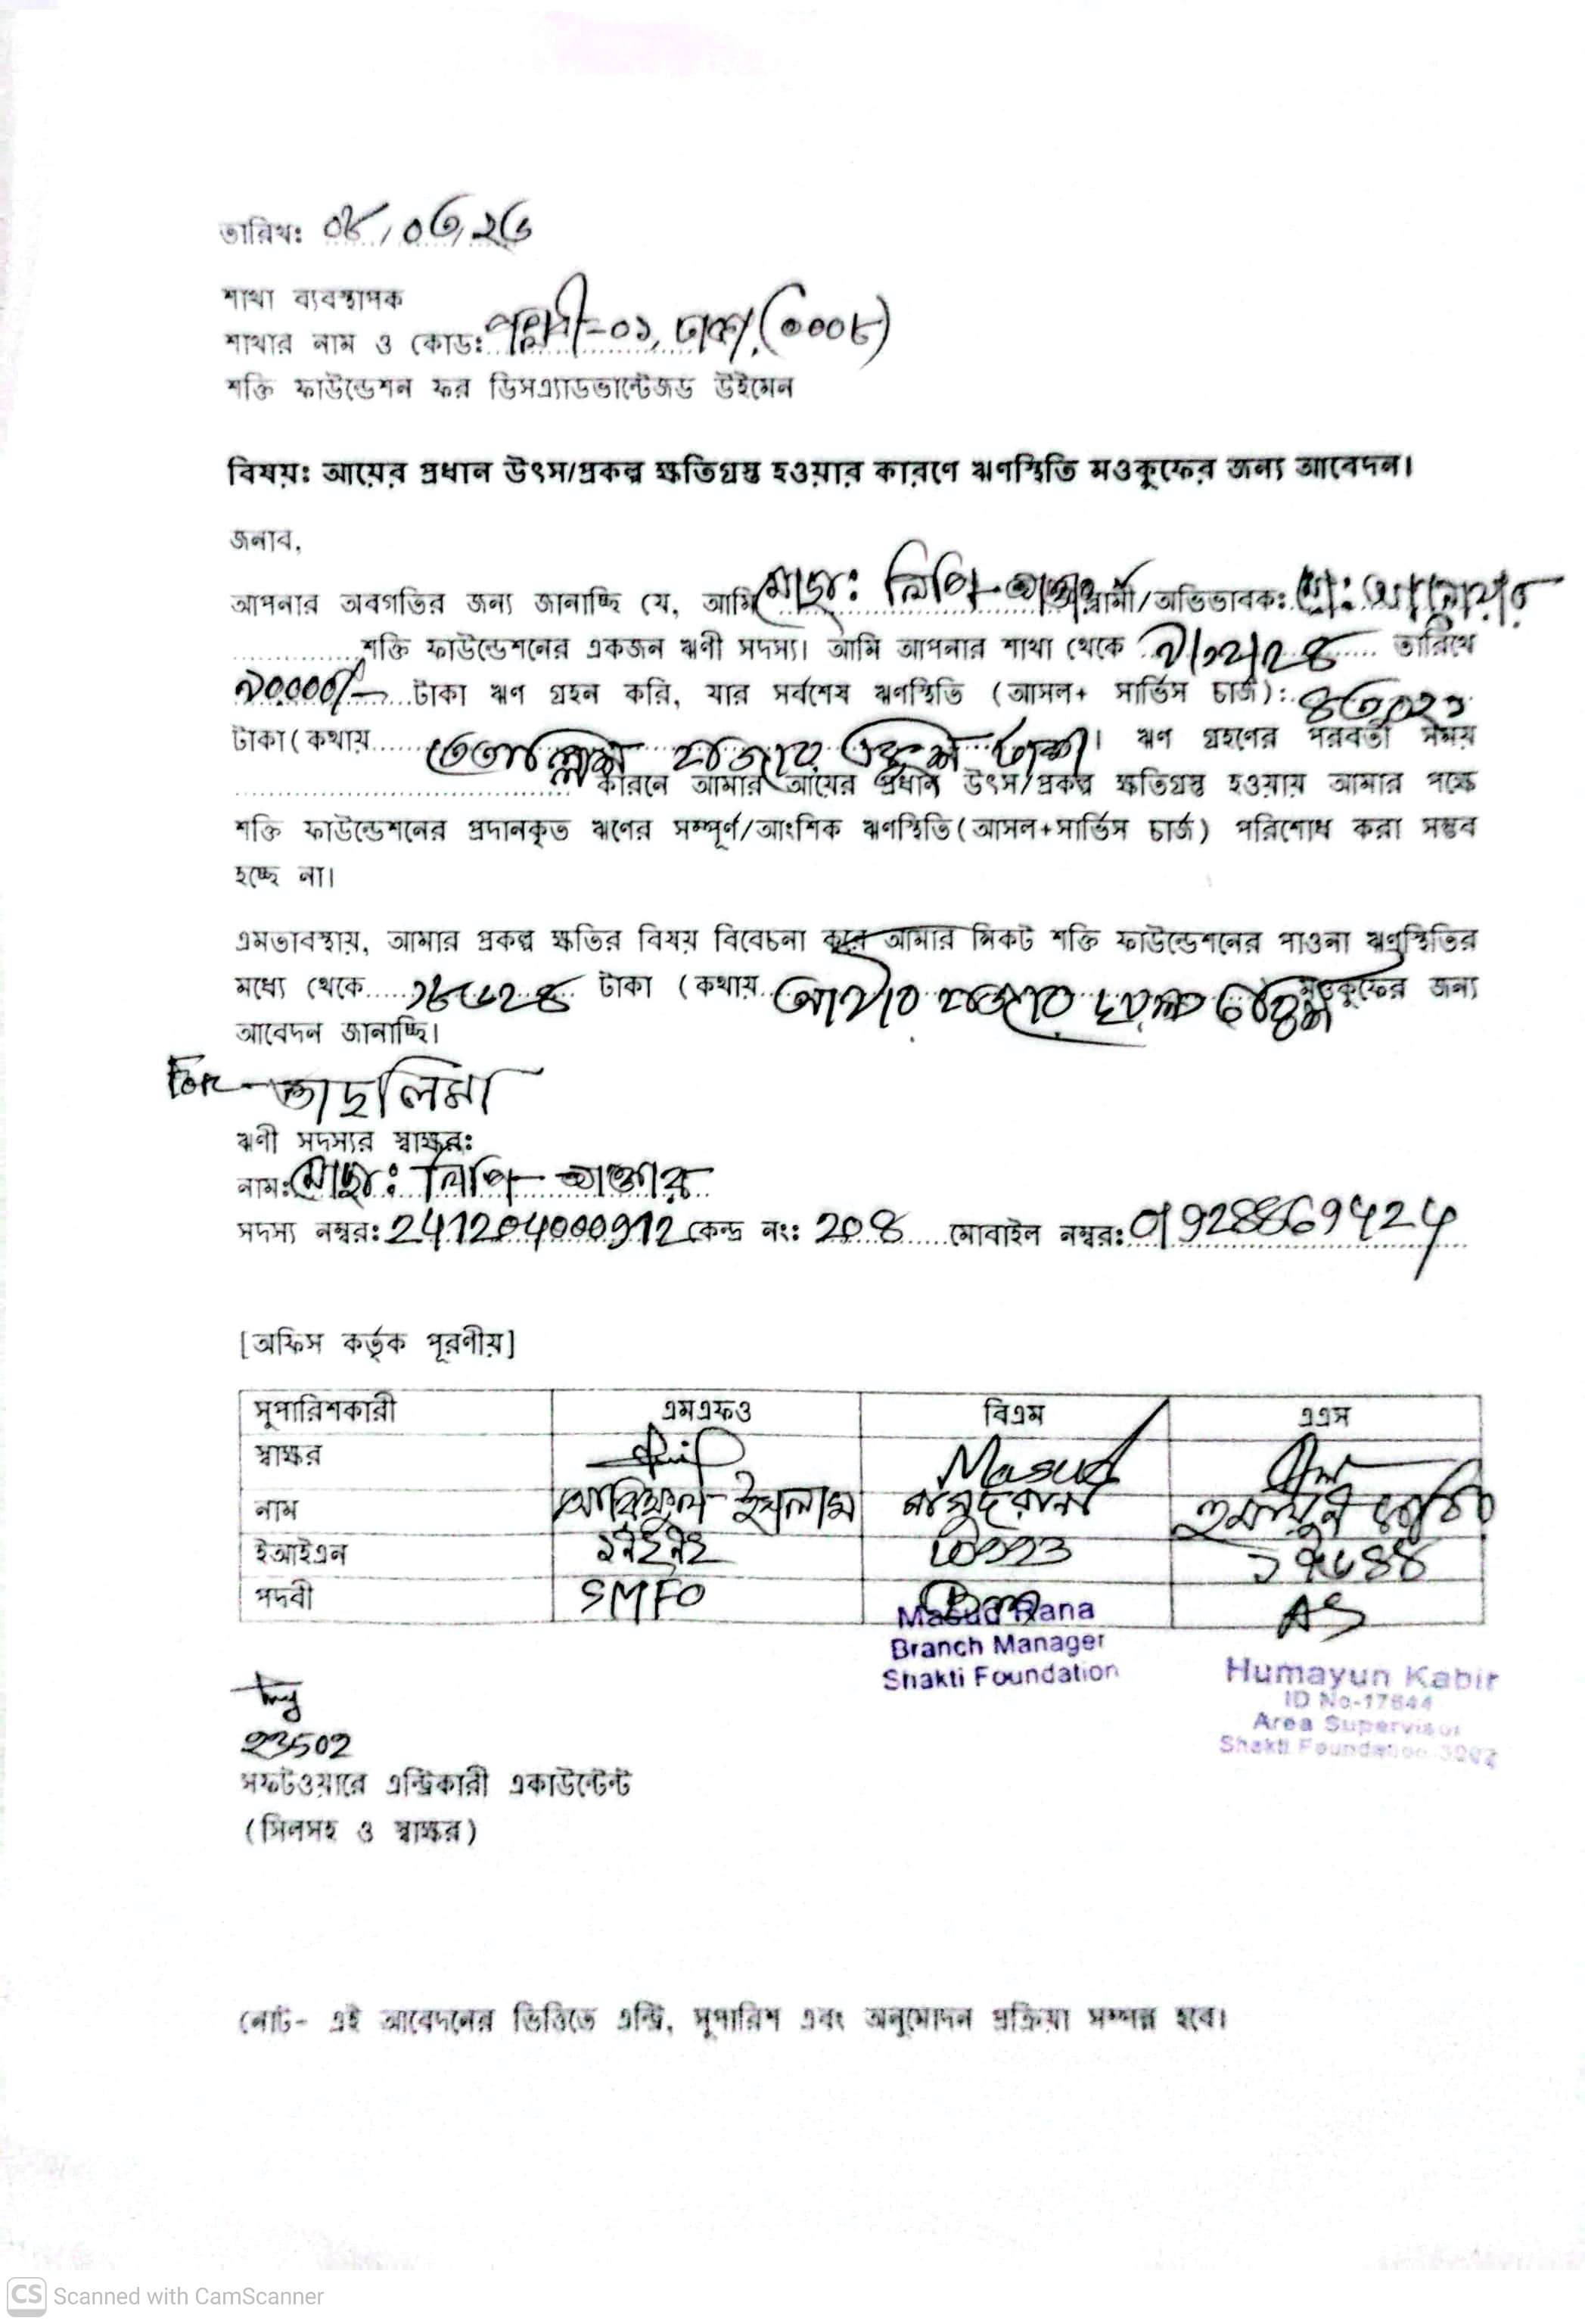 তারিখঃ ০৮/০৩/২৬
শাখা ব্যবস্থাপক
শাখার নাম ও কোডঃ পল্লবী-০১, ঢাকা, (০০০৮)
শক্তি ফাউন্ডেশন ফর ডিসএ্যাডভান্টেজড উইমেন
বিষয়ঃ আয়ের প্রধান উৎস/প্রকল্প ক্ষতিগ্রস্ত হওয়ার কারণে ঋণস্থিতি মওকুফের জন্য আবেদন।
জনাব,
আপনার অবগতির জন্য জানাচ্ছি যে, আমি মোছাঃ লিপি আক্তার স্বামী/অভিভাবকঃ মোঃ আনোয়ার
শক্তি ফাউন্ডেশনের একজন ঋণী সদস্য। আমি আপনার শাখা থেকে ৯/১২/২৪ তারিখে
৯০০০০/- টাকা ঋণ গ্রহন করি, যার সর্বশেষ ঋণস্থিতি (আসল+ সার্ভিস চার্জ): ৪৩০২১
টাকা(কথায় তেতাল্লিশ হাজার একুশ টাকা। ঋণ গ্রহণের পরবর্তী সময়
কারনে আমার আয়ের প্রধান উৎস/প্রকল্প ক্ষতিগ্রস্ত হওয়ায় আমার পক্ষে
শক্তি ফাউন্ডেশনের প্রদানকৃত ঋণের সম্পূর্ণ/আংশিক ঋণস্থিতি(আসল+সার্ভিস চার্জ) পরিশোধ করা সম্ভব
হচ্ছে না।
এমতাবস্থায়, আমার প্রকল্প ক্ষতির বিষয় বিবেচনা করে আমার নিকট শক্তি ফাউন্ডেশনের পাওনা ঋণস্থিতির
মধ্যে থেকে টাকা (কথায় হাজার মওকুফের জন্য
আবেদন জানাচ্ছি।
For- তাছলিমা
ঋণী সদস্যর স্বাক্ষরঃ
নামঃ মোছাঃ লিপি আক্তার
সদস্য নম্বরঃ 241204000912 কেন্দ্র নংঃ 204 মোবাইল নম্বরঃ 01928869424
[অফিস কর্তৃক পূরণীয়]
সুপারিশকারী এমএফও বিএম এএস
স্বাক্ষর Masud
নাম আরিফুল ইসলাম মাসুদ রানা হুমায়ুন কবির
ইআইএন ১৭৬৪৪
পদবী SMFO BM AS
Masud Rana
Branch Manager
Shakti Foundation
Humayun Kabir
ID No-17644
Area Supervisor
Shakti Foundation
23502
সফটওয়ারে এন্ট্রিকারী একাউন্টেন্ট
(সিলসহ ও স্বাক্ষর)
নোট- এই আবেদনের ভিত্তিতে এন্ট্রি, সুপারিশ এবং অনুমোদন প্রক্রিয়া সম্পন্ন হবে।
CS Scanned with CamScanner